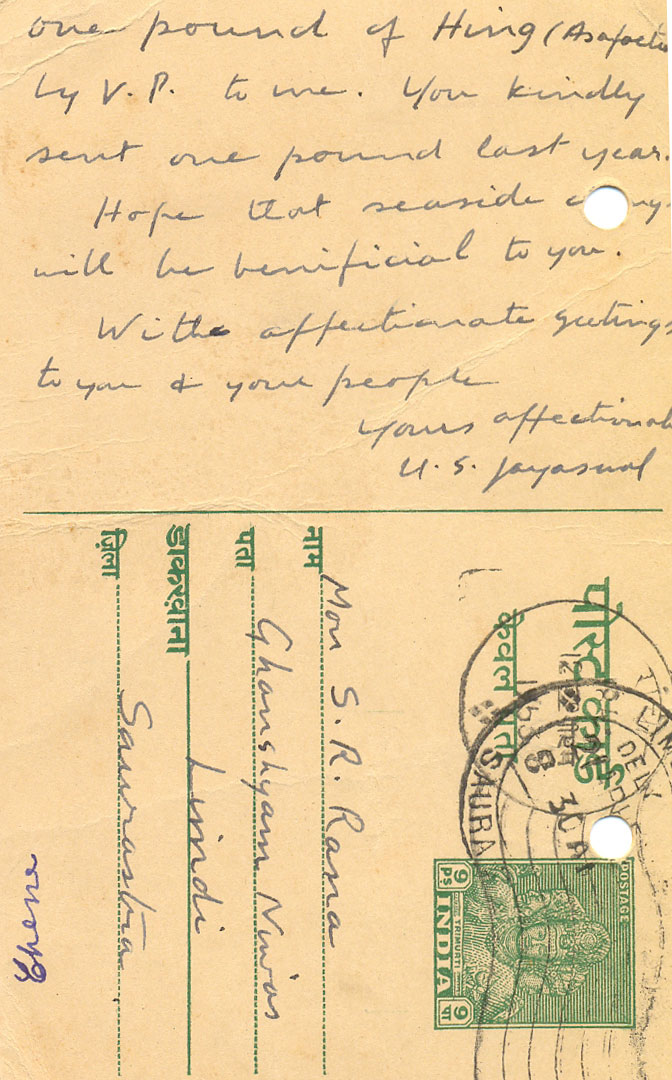 one pound of Hing (Asafoetid
by V. P. to me. You kindly
sent one pound last year.
Hope that seaside
will be benificial to you.
With affectionate geetings
to you & your people
Yours affectionat
U. S. Jayaswal
पोस्ट कार्ड
केवल पता
नाम Mon S. R. Rana
पता Ghanshyam Niwas
डाकखाना Limdi
ज़िला Saurastra
Chene
POSTAGE
TRIMURTI
INDIA
9 PS
9 पा
SAURA
DELY